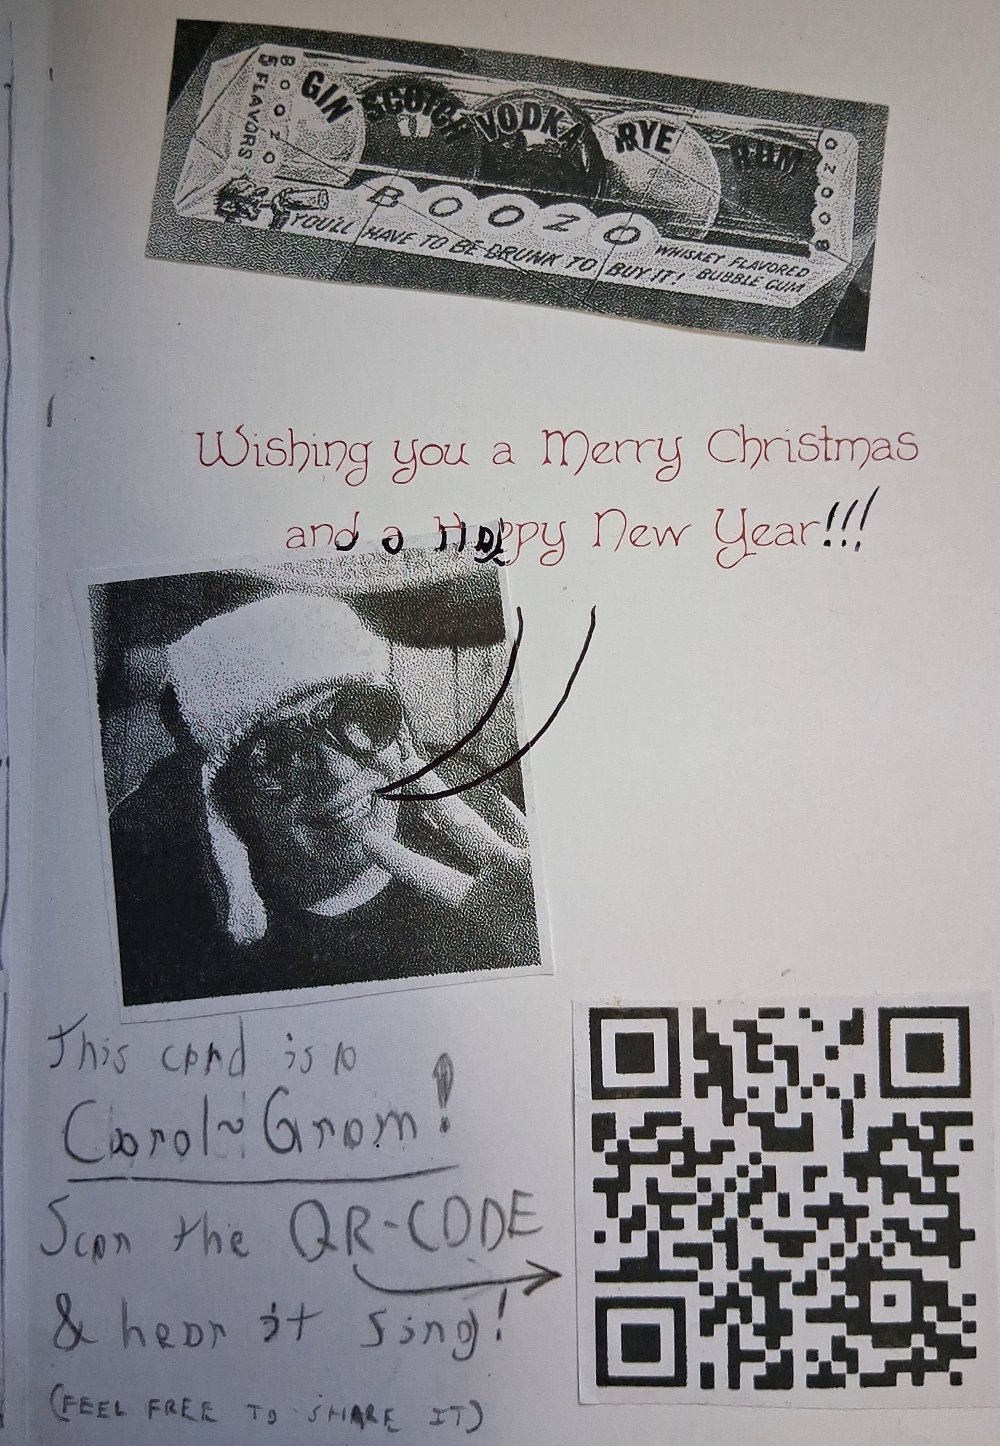 BOOZO
5 FLAVORS
GIN SCOTCH VODKA RYE RUM
BOOZO
BOOZO
YOU'LL HAVE TO BE DRUNK TO BUY IT!
WHISKEY FLAVORED
BUBBLE GUM
Wishing you a Merry Christmas
and a Happy New Year!!!
This card is a
Carol~Gram!
Scan the QR-CODE
& hear it sing!
(FEEL FREE TO SHARE IT)